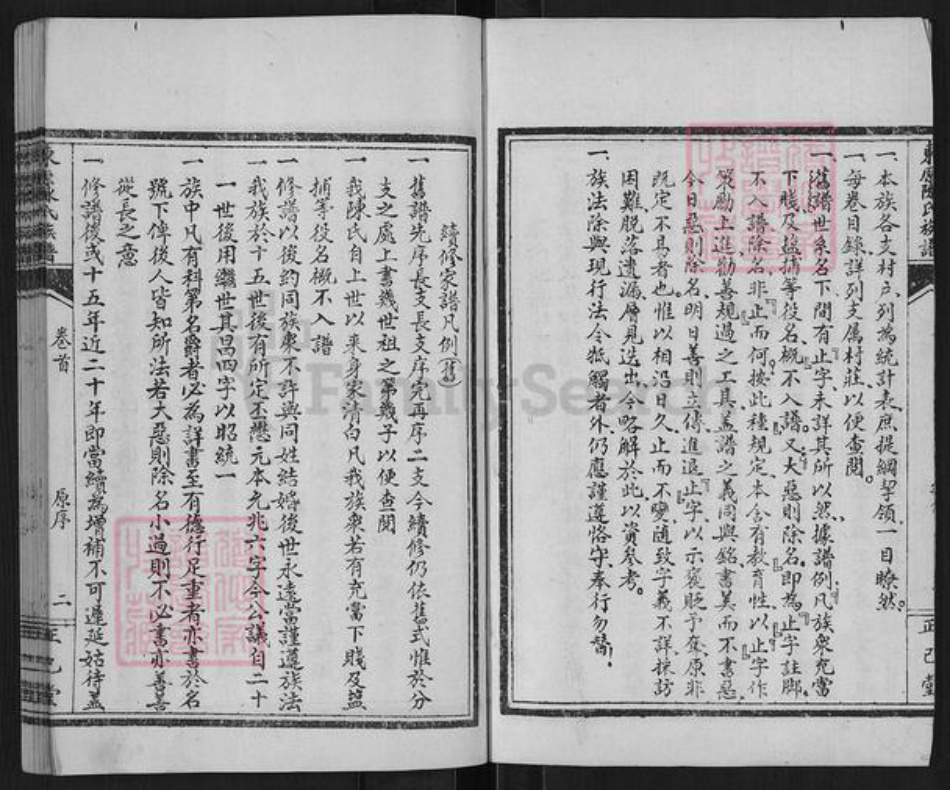 一、本族各支村户列為統計表庶提綱挈領一目瞭然。
一、每卷目錄詳列支属村莊以便查閱。
一、舊譜世系名下間有『止』字未詳其所以然據譜例凡族衆充當
下賤及搤捕等役名概不入譜。又大惡則除名。即為『止』字註脚。
不入譜除名非『止』而何。按此種規定本含有教育性以『止』字作
策勵上進勸善規過之工具盖譜之義同與銘書美而不書惡
今日惡則除名明日善則立傳進退『止』字以示褒貶予奪原非
既定不易者也惟以相沿日久止而不變随致字義不詳採訪
困難脱落遺漏層見迭出今略解於此以資參考。
一、族法除與現行法令抵觸者外仍應謹遵恪守奉行勿替。
續修家譜凡例(舊)
一舊譜先序長支長支序完再序二支今續修仍依舊式惟於分
支之處上書幾世祖之第幾子以便查閱
一我陳氏自上世以來身家清白凡我族衆若有充當下賤及搤
捕等役名概不入譜
一修譜以後約同族衆不許與同姓結婚後世永遠當謹遵族法
一我族於十五世後有所定丕懋元本允兆六字今公議自二十
一世後用繼世其昌四字以昭統一
一族中凡有科第名爵者必為詳書至有德行足重者亦書於名
號下俾後人皆知所法若大惡則除名小過則不必書亦善善
從長之意
一修譜後或十五年近二十年即當續為增補不可遲延姑待盖
卷首
原序
二
正己堂